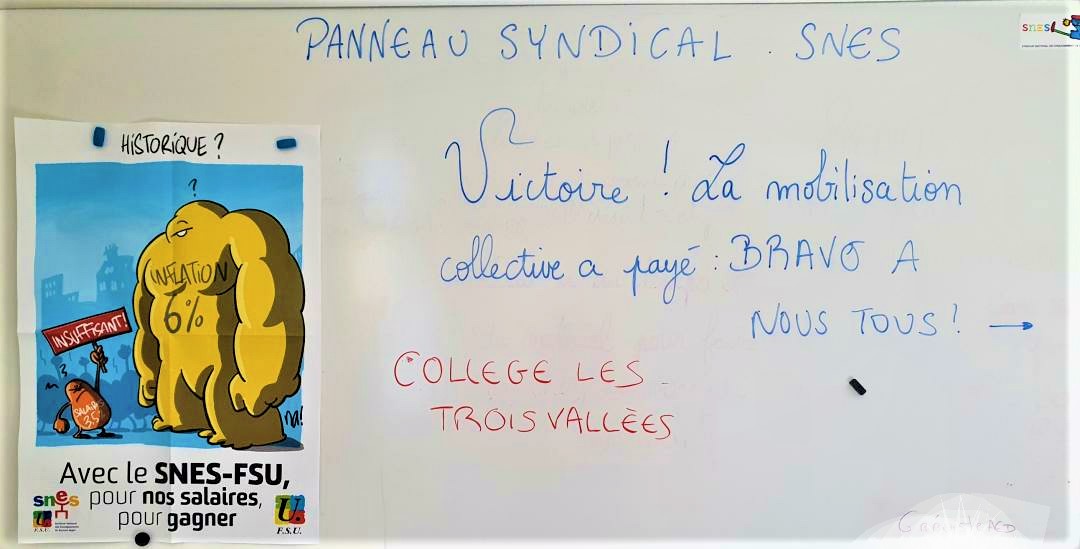 PANNEAU SYNDICAL . SNES
snes
HiSTORiQUE ?
?
INFLATION
6%
INSUFFISANT!
SALAIRES
3,5%
Avec le SNES-FSU,
pour nos salaires,
pour gagner
snes
F.S.U.
U.
F.S.U.
Victoire ! La mobilisation
collective a payé : BRAVO A
NOUS TOUS! →
COLLEGE LES
TROIS VALLÈES